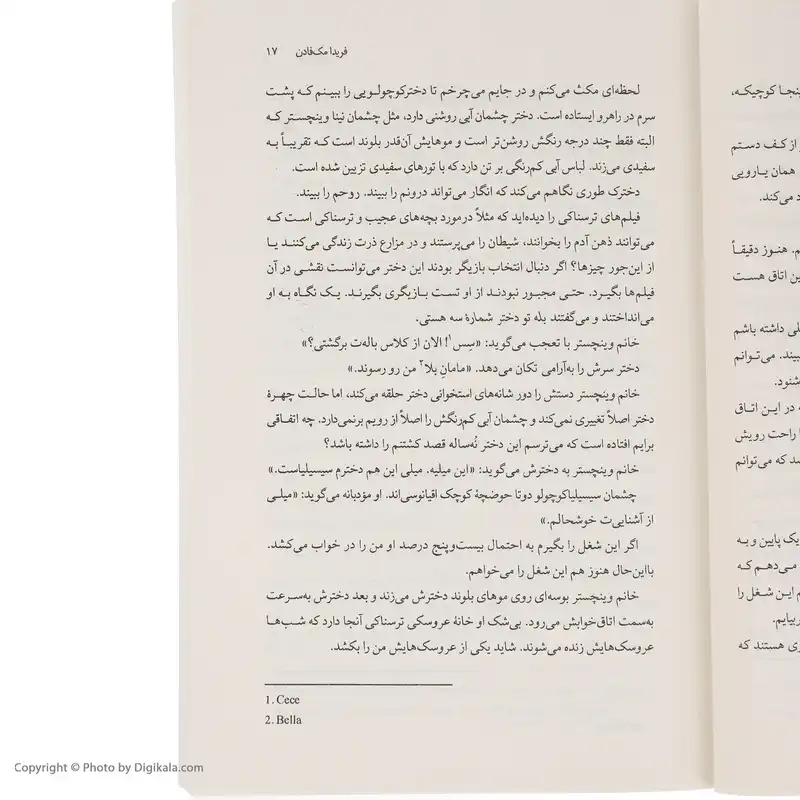 فریدا مک‌فادن ۱۷
لحظه‌ای مکث می‌کنم و در جایم می‌چرخم تا دخترکوچولویی را ببینم که پشت
سرم در راهرو ایستاده است. دختر چشمان آبی روشنی دارد، مثل چشمان نینا وینچستر که
البته فقط چند درجه رنگش روشن‌تر است و موهایش آن‌قدر بلوند است که تقریباً به
سفیدی می‌زند. لباس آبی کم‌رنگی بر تن دارد که با تورهای سفیدی تزیین شده است.
دخترک طوری نگاهم می‌کند که انگار می‌تواند درونم را ببیند. روحم را ببیند.
فیلم‌های ترسناکی را دیده‌اید که مثلاً درمورد بچه‌های عجیب و ترسناکی است که
می‌توانند ذهن آدم را بخوانند، شیطان را می‌پرستند و در مزارع ذرت زندگی می‌کنند یا
از این‌جور چیزها؟ اگر دنبال انتخاب بازیگر بودند این دختر می‌توانست نقشی در آن
فیلم‌ها بگیرد. حتی مجبور نبودند از او تست بازیگری بگیرند. یک نگاه به او
می‌انداختند و می‌گفتند بله تو دختر شمارهٔ سه هستی.
خانم وینچستر با تعجب می‌گوید: «سِس۱! الان از کلاس باله‌ت برگشتی؟»
دختر سرش را به‌آرامی تکان می‌دهد. «مامانِ بلا۲ من رو رسوند.»
خانم وینچستر دستش را دور شانه‌های استخوانی دختر حلقه می‌کند، اما حالت چهرهٔ
دختر اصلاً تغییری نمی‌کند و چشمان آبی کم‌رنگش را اصلاً از رویم برنمی‌دارد. چه اتفاقی
برایم افتاده است که می‌ترسم این دختر نُه‌ساله قصد کشتنم را داشته باشد؟
خانم وینچستر به دخترش می‌گوید: «این میلیه. میلی این هم دخترم سیسیلیاست.»
چشمان سیسیلیاکوچولو دوتا حوضچهٔ کوچک اقیانوسی‌اند. او مؤدبانه می‌گوید: «میلی
از آشنایی‌ت خوشحالم.»
اگر این شغل را بگیرم به احتمال بیست‌وپنج درصد او من را در خواب می‌کشد.
بااین‌حال هنوز هم این شغل را می‌خواهم.
خانم وینچستر بوسه‌ای روی موهای بلوند دخترش می‌زند و بعد دخترش به‌سرعت
به‌سمت اتاق‌خوابش می‌رود. بی‌شک او خانهٔ عروسکی ترسناکی آنجا دارد که شب‌ها
عروسک‌هایش زنده می‌شوند. شاید یکی از عروسک‌هایش من را بکشد.
1. Cece
2. Bella
کوچیکه،
از کف دستم
همان یارویی
می‌کند.
هنوز دقیقاً
اتاق هست
داشته باشم
می‌توانم
در این اتاق
راحت رویش
که می‌توانم
یک پایین و به
می‌دهم که
این شغل را
هستند که
Copyright © Photo by Digikala.com